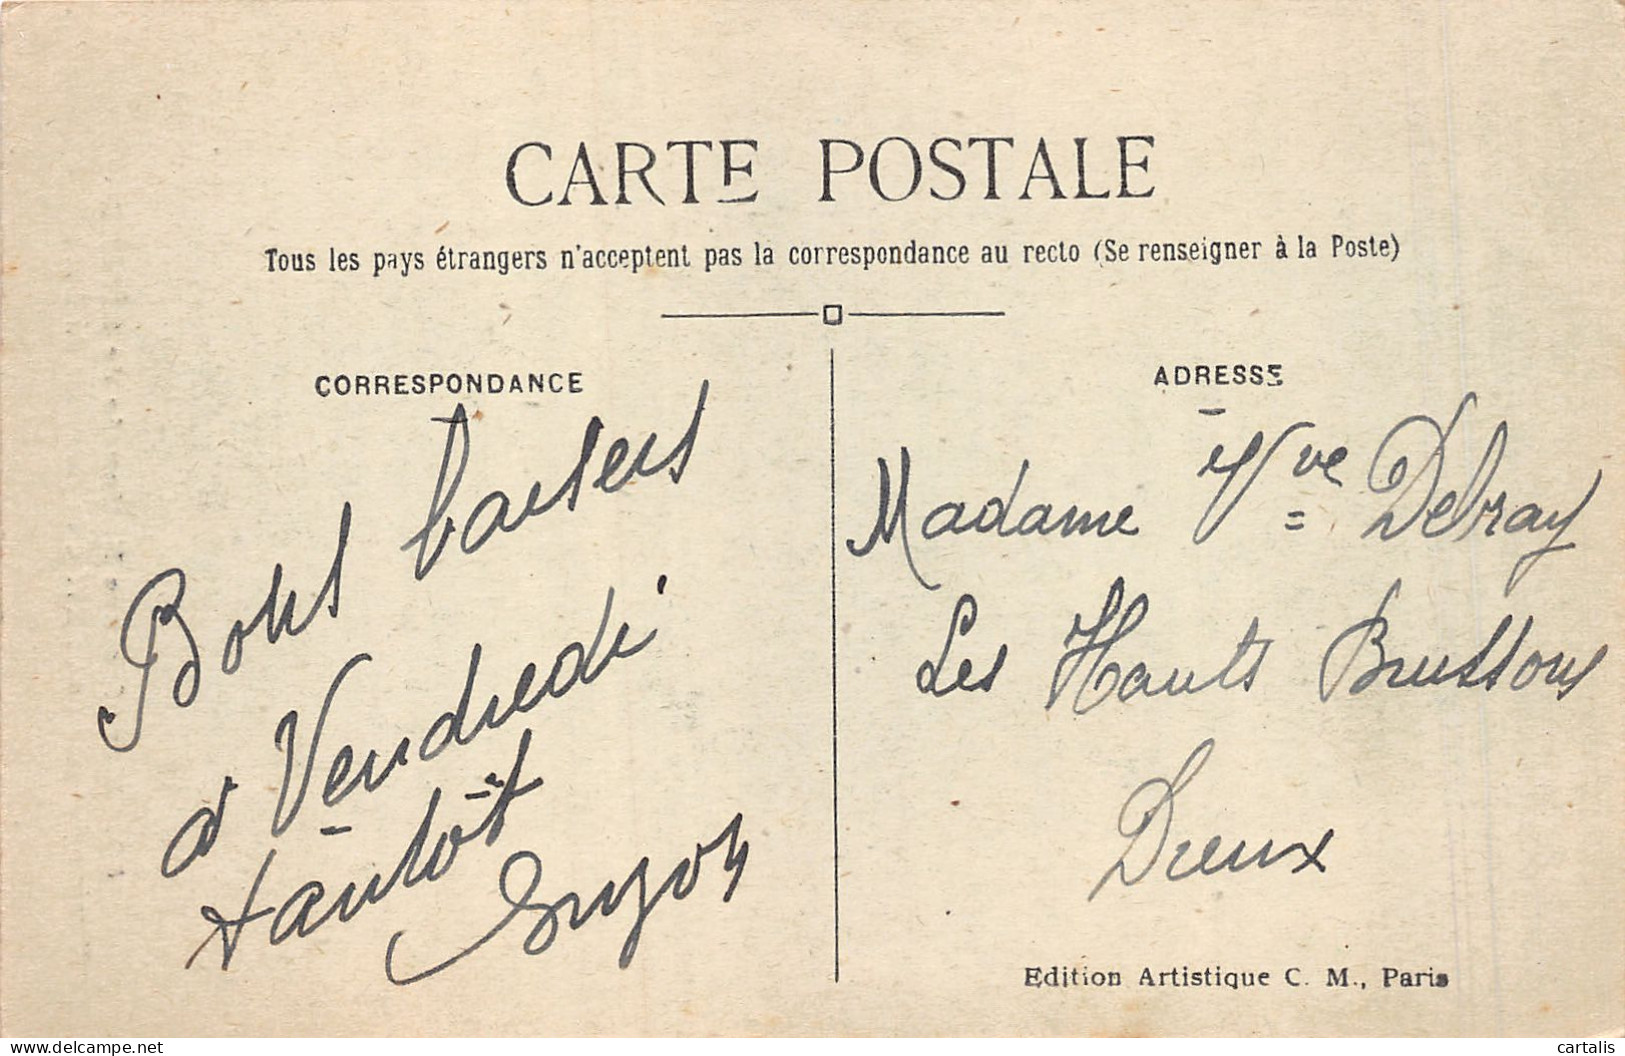 CARTE POSTALE
Tous les pays étrangers n'acceptent pas la correspondance au recto (Se renseigner à la Poste)
CORRESPONDANCE
Bons baisers
a Vendredi
tantôt
ADRESSE
Madame Vve Delray
Les Hauts Buissons
Dreux
Edition Artistique C. M., Paris
www.delcampe.net
cartalis